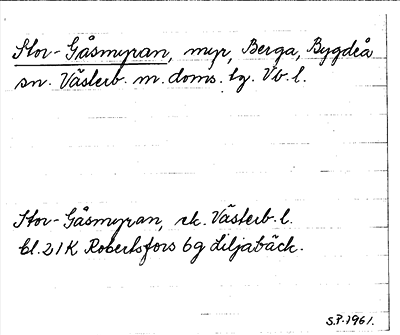 Stor-Gåsmyran, myr, Berga, Bygdeå
sn. Västerb. m. doms. tg. Vb. l.
Stor-Gåsmyran, ek. Västerb. l.
bl. 21K Robertsfors 6g Liljabäck.
S.P. 1961.